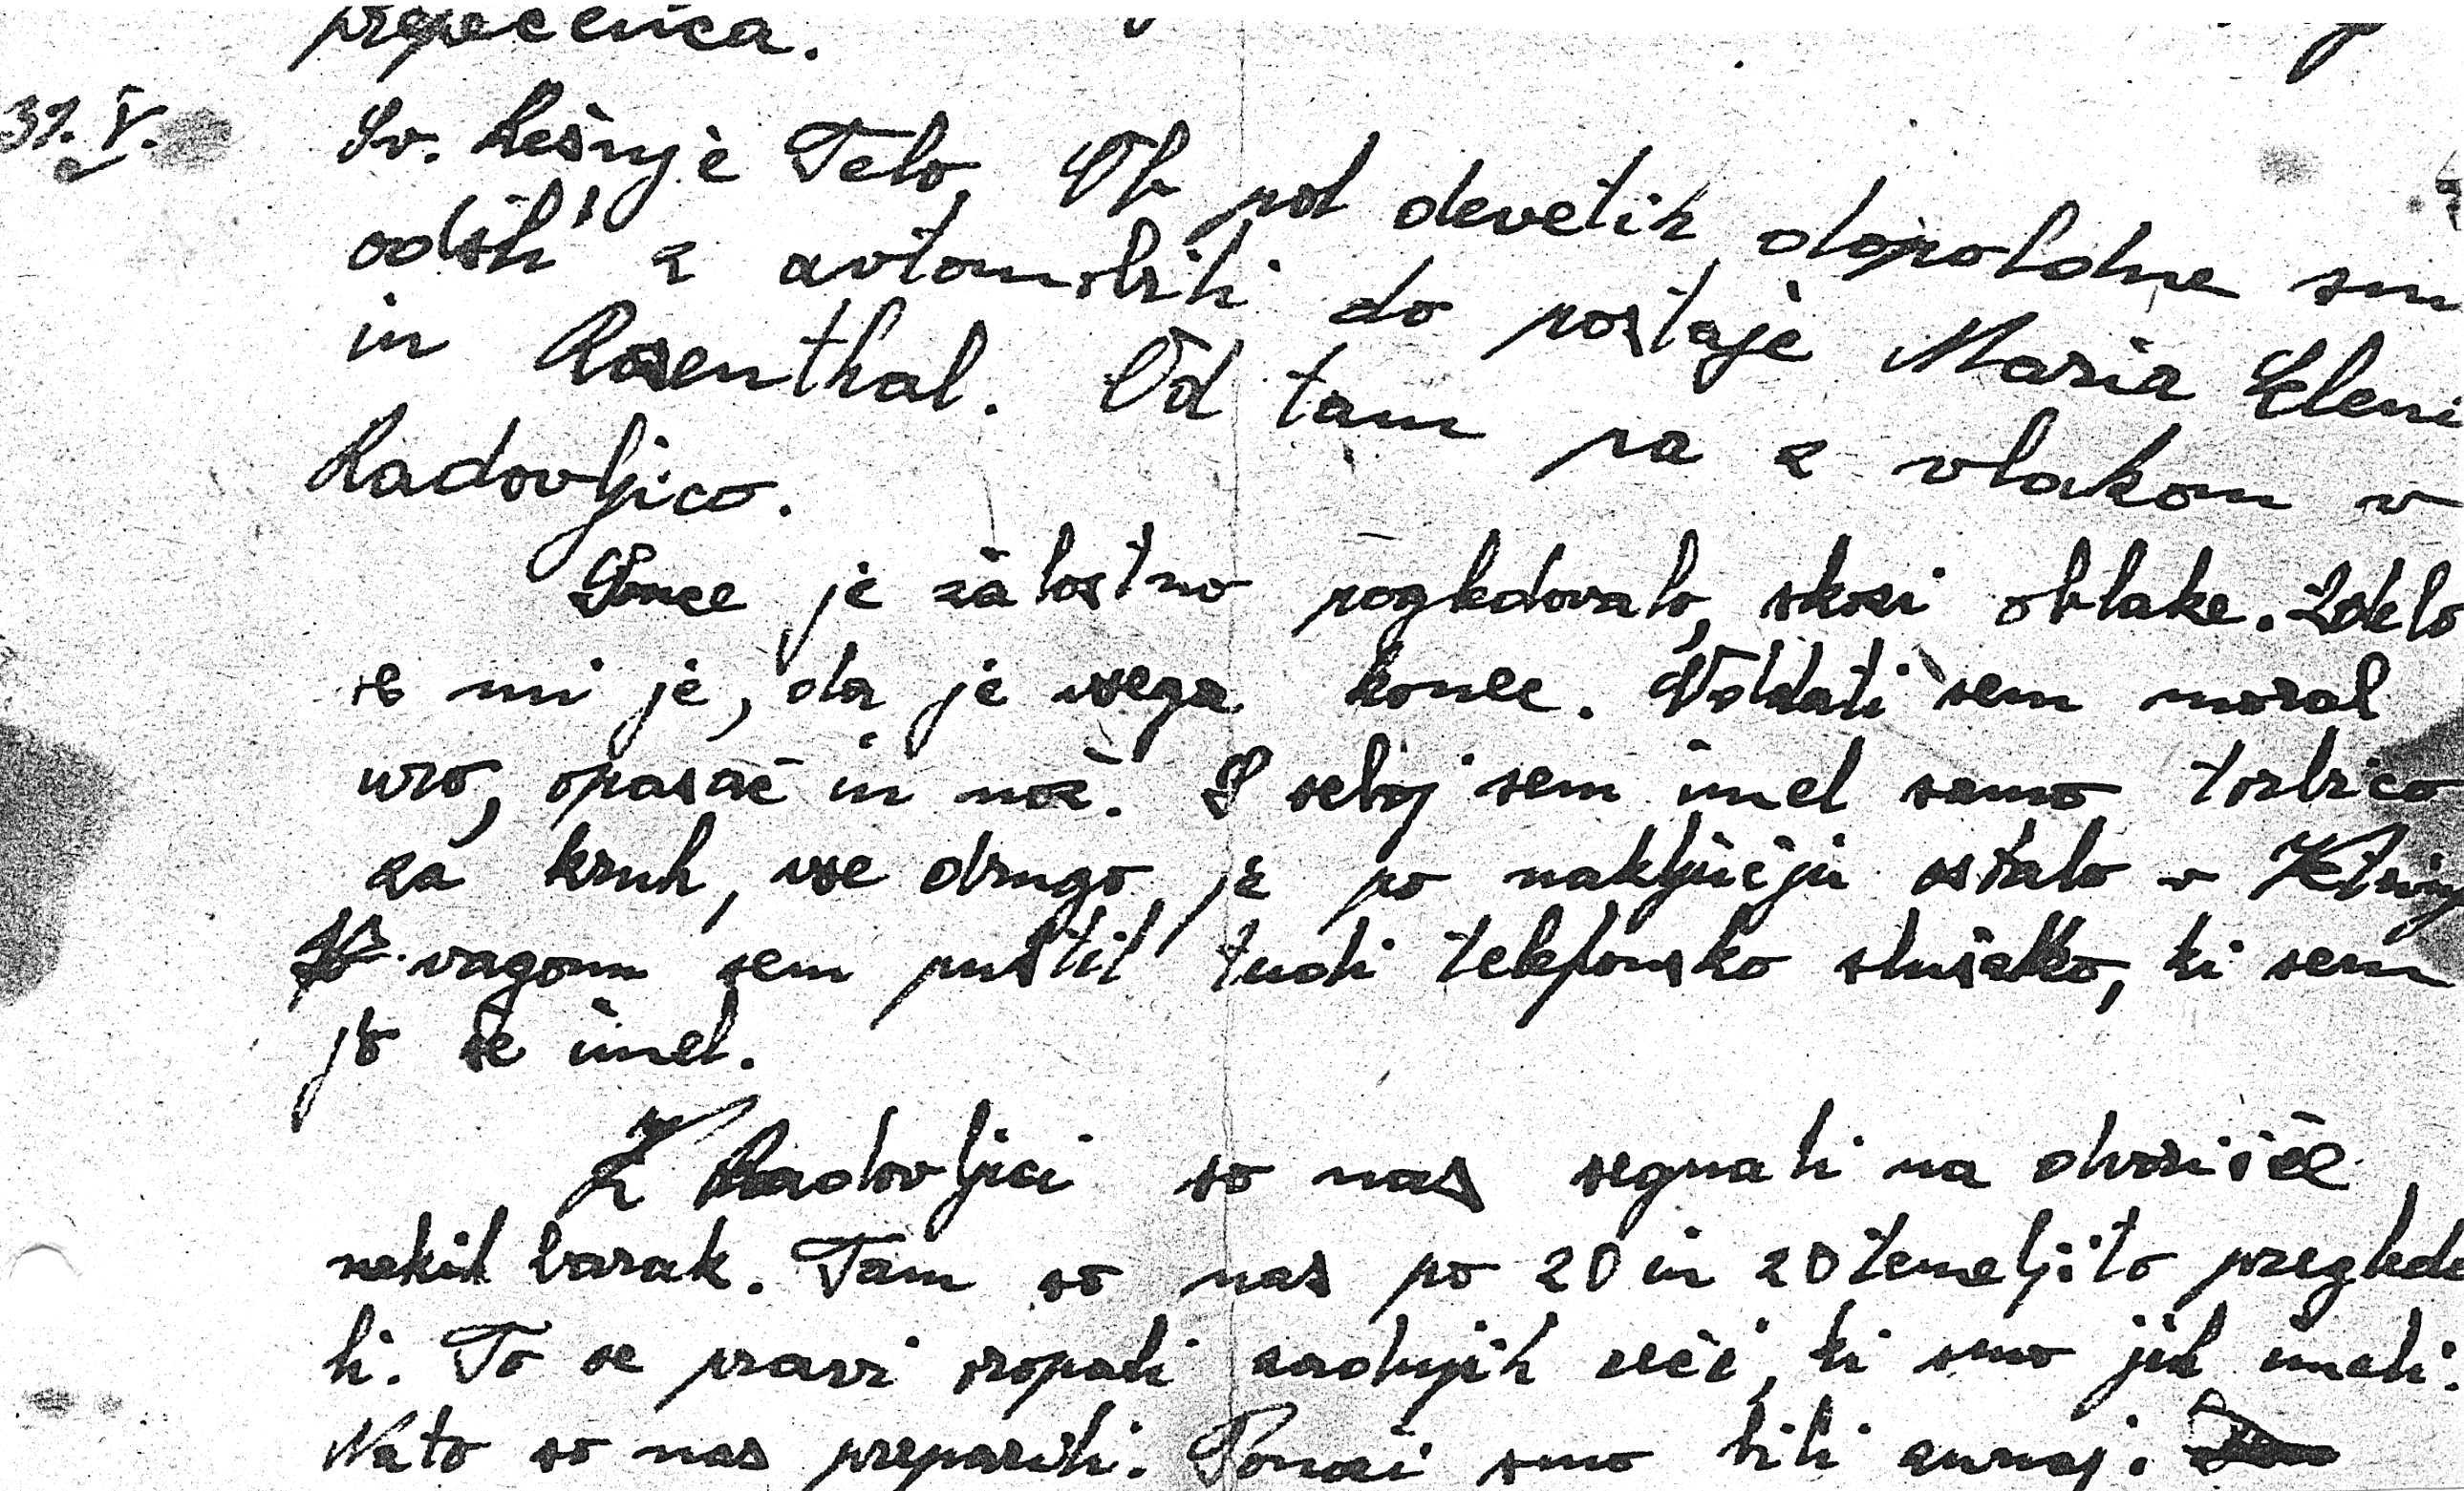 prepečenca.
31. V.
Sv. Rešnje Telo. Ob pol devetih dopoldne smo
odšli z avtomobili do postaje Maria Eleni
in Rosenthal. Od tam pa z vlakom v
Radovljico.
Sonce je žalostno pogledovalo skozi oblake. Zdelo
se mi je, da je vsega konec. Oddati sem moral
uro, opasač in nož. S seboj sem imel samo torbico
za kruh, vse drugo je po naključju ostalo v
V vagonu sem pustil tudi telefonsko slušalko, ki sem
jo še imel.
V Radovljici so nas segnali na dvorišče
nekih barak. Tam so nas po 20 in 20 temeljito pregleda
li. To se pravi oropali zadnjih reči, ki smo jih imeli.
Nato so nas Ponoči smo bili zunaj.